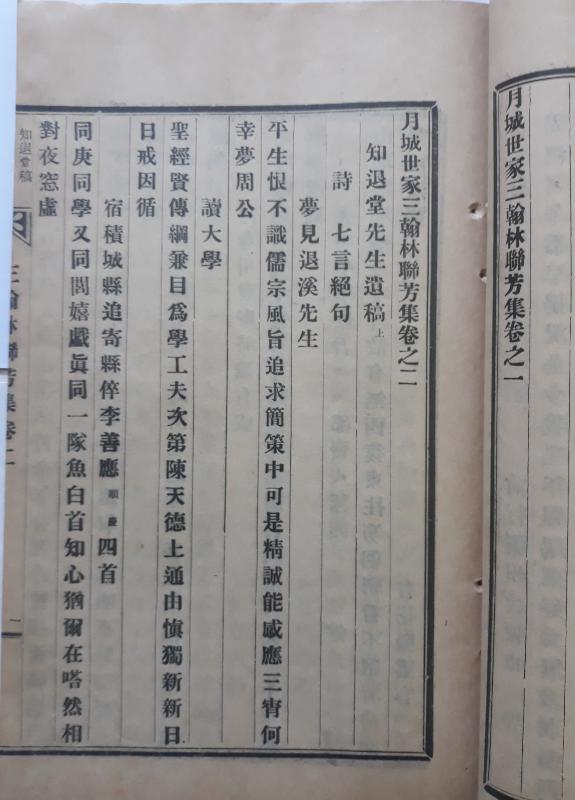 月城世家三翰林聯芳集卷之一
月城世家三翰林聯芳集卷之二
知退堂先生遺稿上
詩　七言絕句
夢見退溪先生
平生恨不識儒宗風旨追求簡策中可是精誠能感應三宵何
幸夢周公
讀大學
聖經賢傳綱兼目爲學工夫次第陳天德上通由愼獨新新日
日戒因循
宿積城縣追寄縣倅李善應順慶四首
同庚同學又同閭嬉戱眞同一隊魚白首知心猶爾在嗒然相
對夜窓虛
知退堂稿
三翰林聯芳集卷二
一